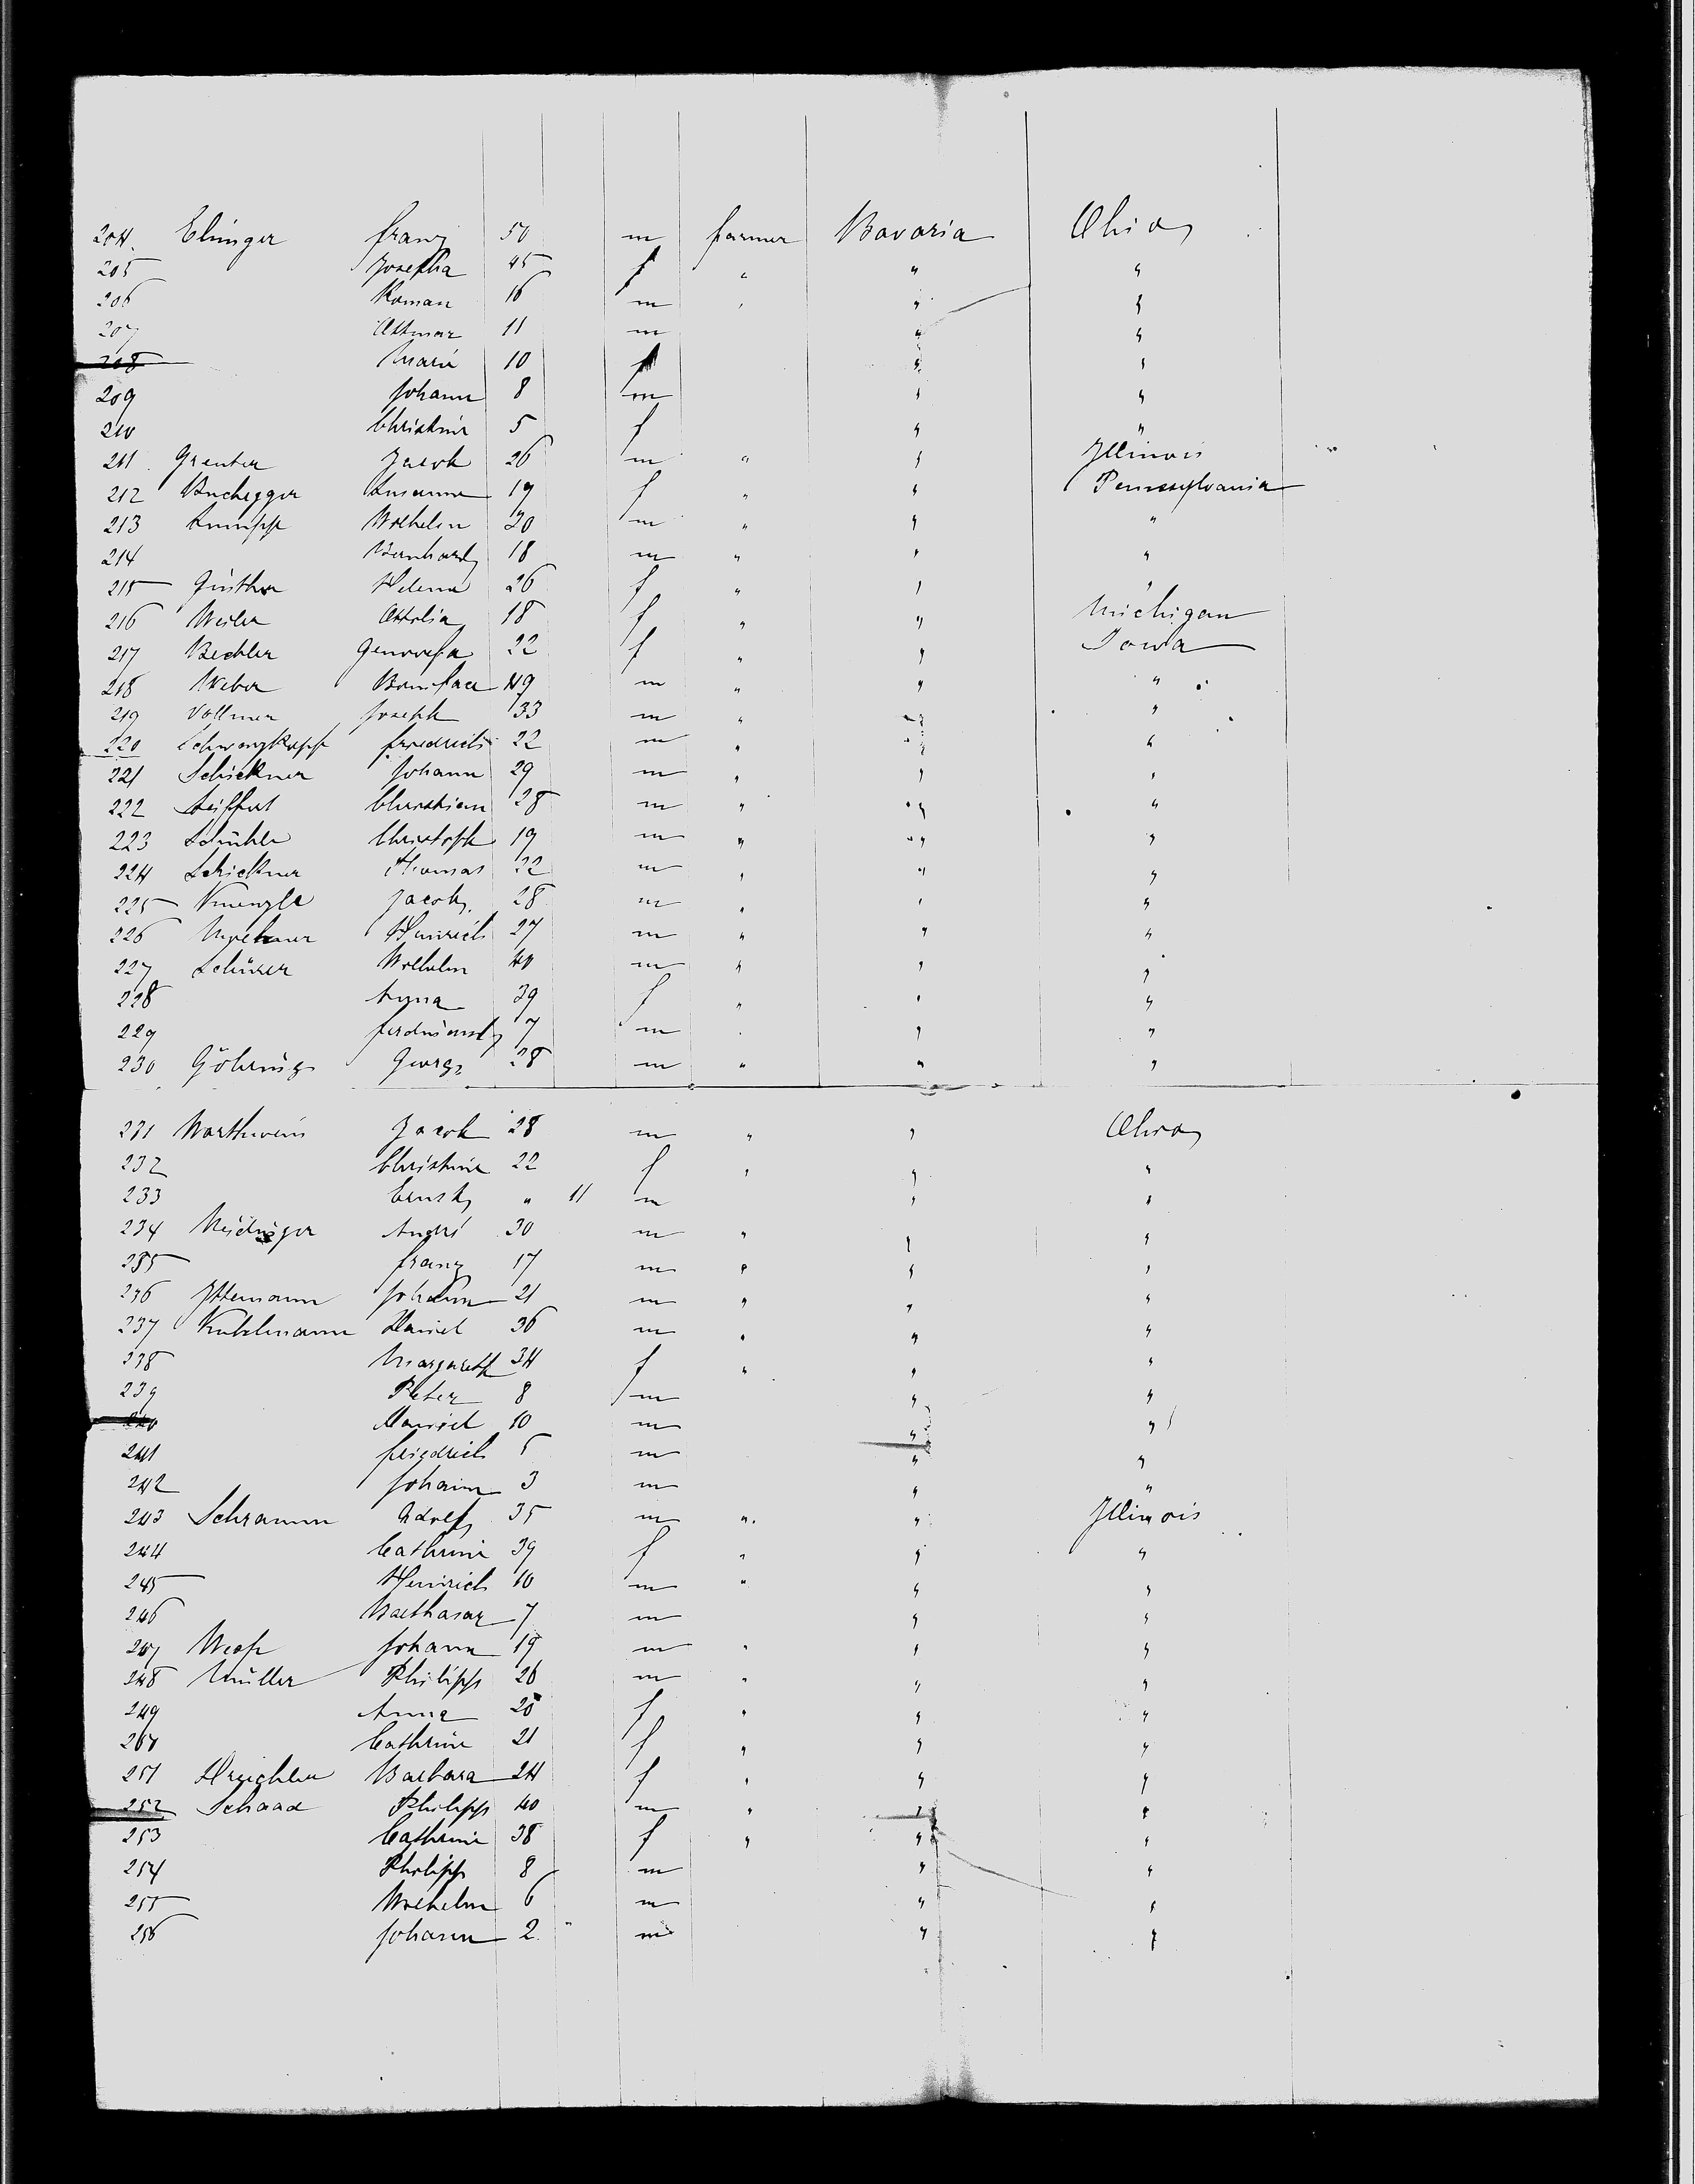 204. Elinger Franz 50 m farmer Bavaria Ohio
205 Josepha 45 f " " "
206 Roman 16 m " " "
207 Ottmar 11 m " "
208 Marie 10 f " "
209 Johann 8 m " "
210 Christine 5 f " "
211. Jacob 26 m " " Illinois
212 Buchegger Susanna 19 f " " Pennsylvania
213 Wilhelm 20 m " " "
214 Bernhard 18 m " " "
215 Günther Helena 26 f " " "
216 Weiler Ottilia 18 f " " Michigan
217 Bechler Genovefa 22 f " " Iowa
218 Weber Bonifacz 49 m " " "
219 Vollmer Joseph 33 m " " "
220 Schwarzkopf Friedrich 22 m " " "
221 Schickner Johann 29 m " " "
222 Seiffert Christian 28 m " " "
223 Schühle Christoph 19 m " " "
224 Schickner Thomas 22 m " " "
225 Kuenzle Jacob 28 m " " "
226 Heinrich 27 m " " "
227 Schürer Wilhelm 40 m " " "
228 Anna 39 f " " "
229 Ferdinand 7 m " "
230 Göhring Georg 28 m " " "
231 Warthwein Jacob 28 m " " Ohio
232 Christine 22 f " " "
233 Ernst " 11 m " "
234 André 30 m " " "
235 Franz 17 m " " "
236 Johann 21 m " " "
237 Kuhlmann Daniel 36 m " " "
238 Margareth 34 f " " "
239 Peter 8 m " "
240 Daniel 10 m " "
241 Friedrich 5 m " "
242 Johann 3 m " "
243 Schramm Adolf 35 m " " Illinois
244 Cathrine 39 f " " "
245 Heinrich 10 m " " "
246 Balthasar 7 m " "
247 Johann 19 m " " "
248 Müller Philipp 26 m " " "
249 Anna 20 f " " "
250 Cathrine 21 f " " "
251 Barbara 24 f " " "
252 Schaad Philipp 40 m " " "
253 Cathrine 38 f " " "
254 Philipp 8 m " "
255 Wilhelm 6 m " "
256 Johann 2 m " "